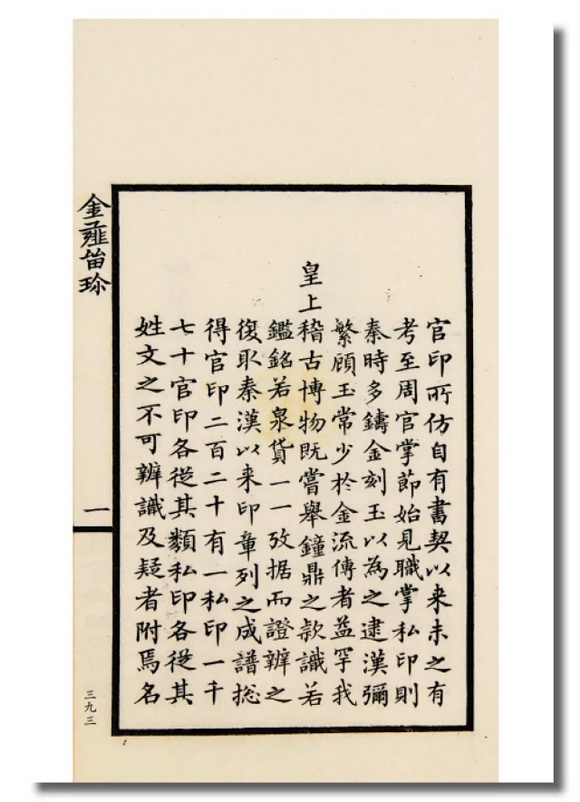 官印所仿自有書契以来未之有
考至周官掌節始見職掌私印則
秦時多鑄金刻玉以為之逮漢彌
繁顧玉常少於金流傳者益罕我
皇上稽古博物既嘗舉鐘鼎之款識若
鑑銘若泉貨一一攷据而證辨之
復取秦漢以来印章列之成譜揔
得官印二百二十有一私印一千
七十官印各從其類私印各從其
姓文之不可辨識及疑者附焉名
金薤留珍
一
三九三